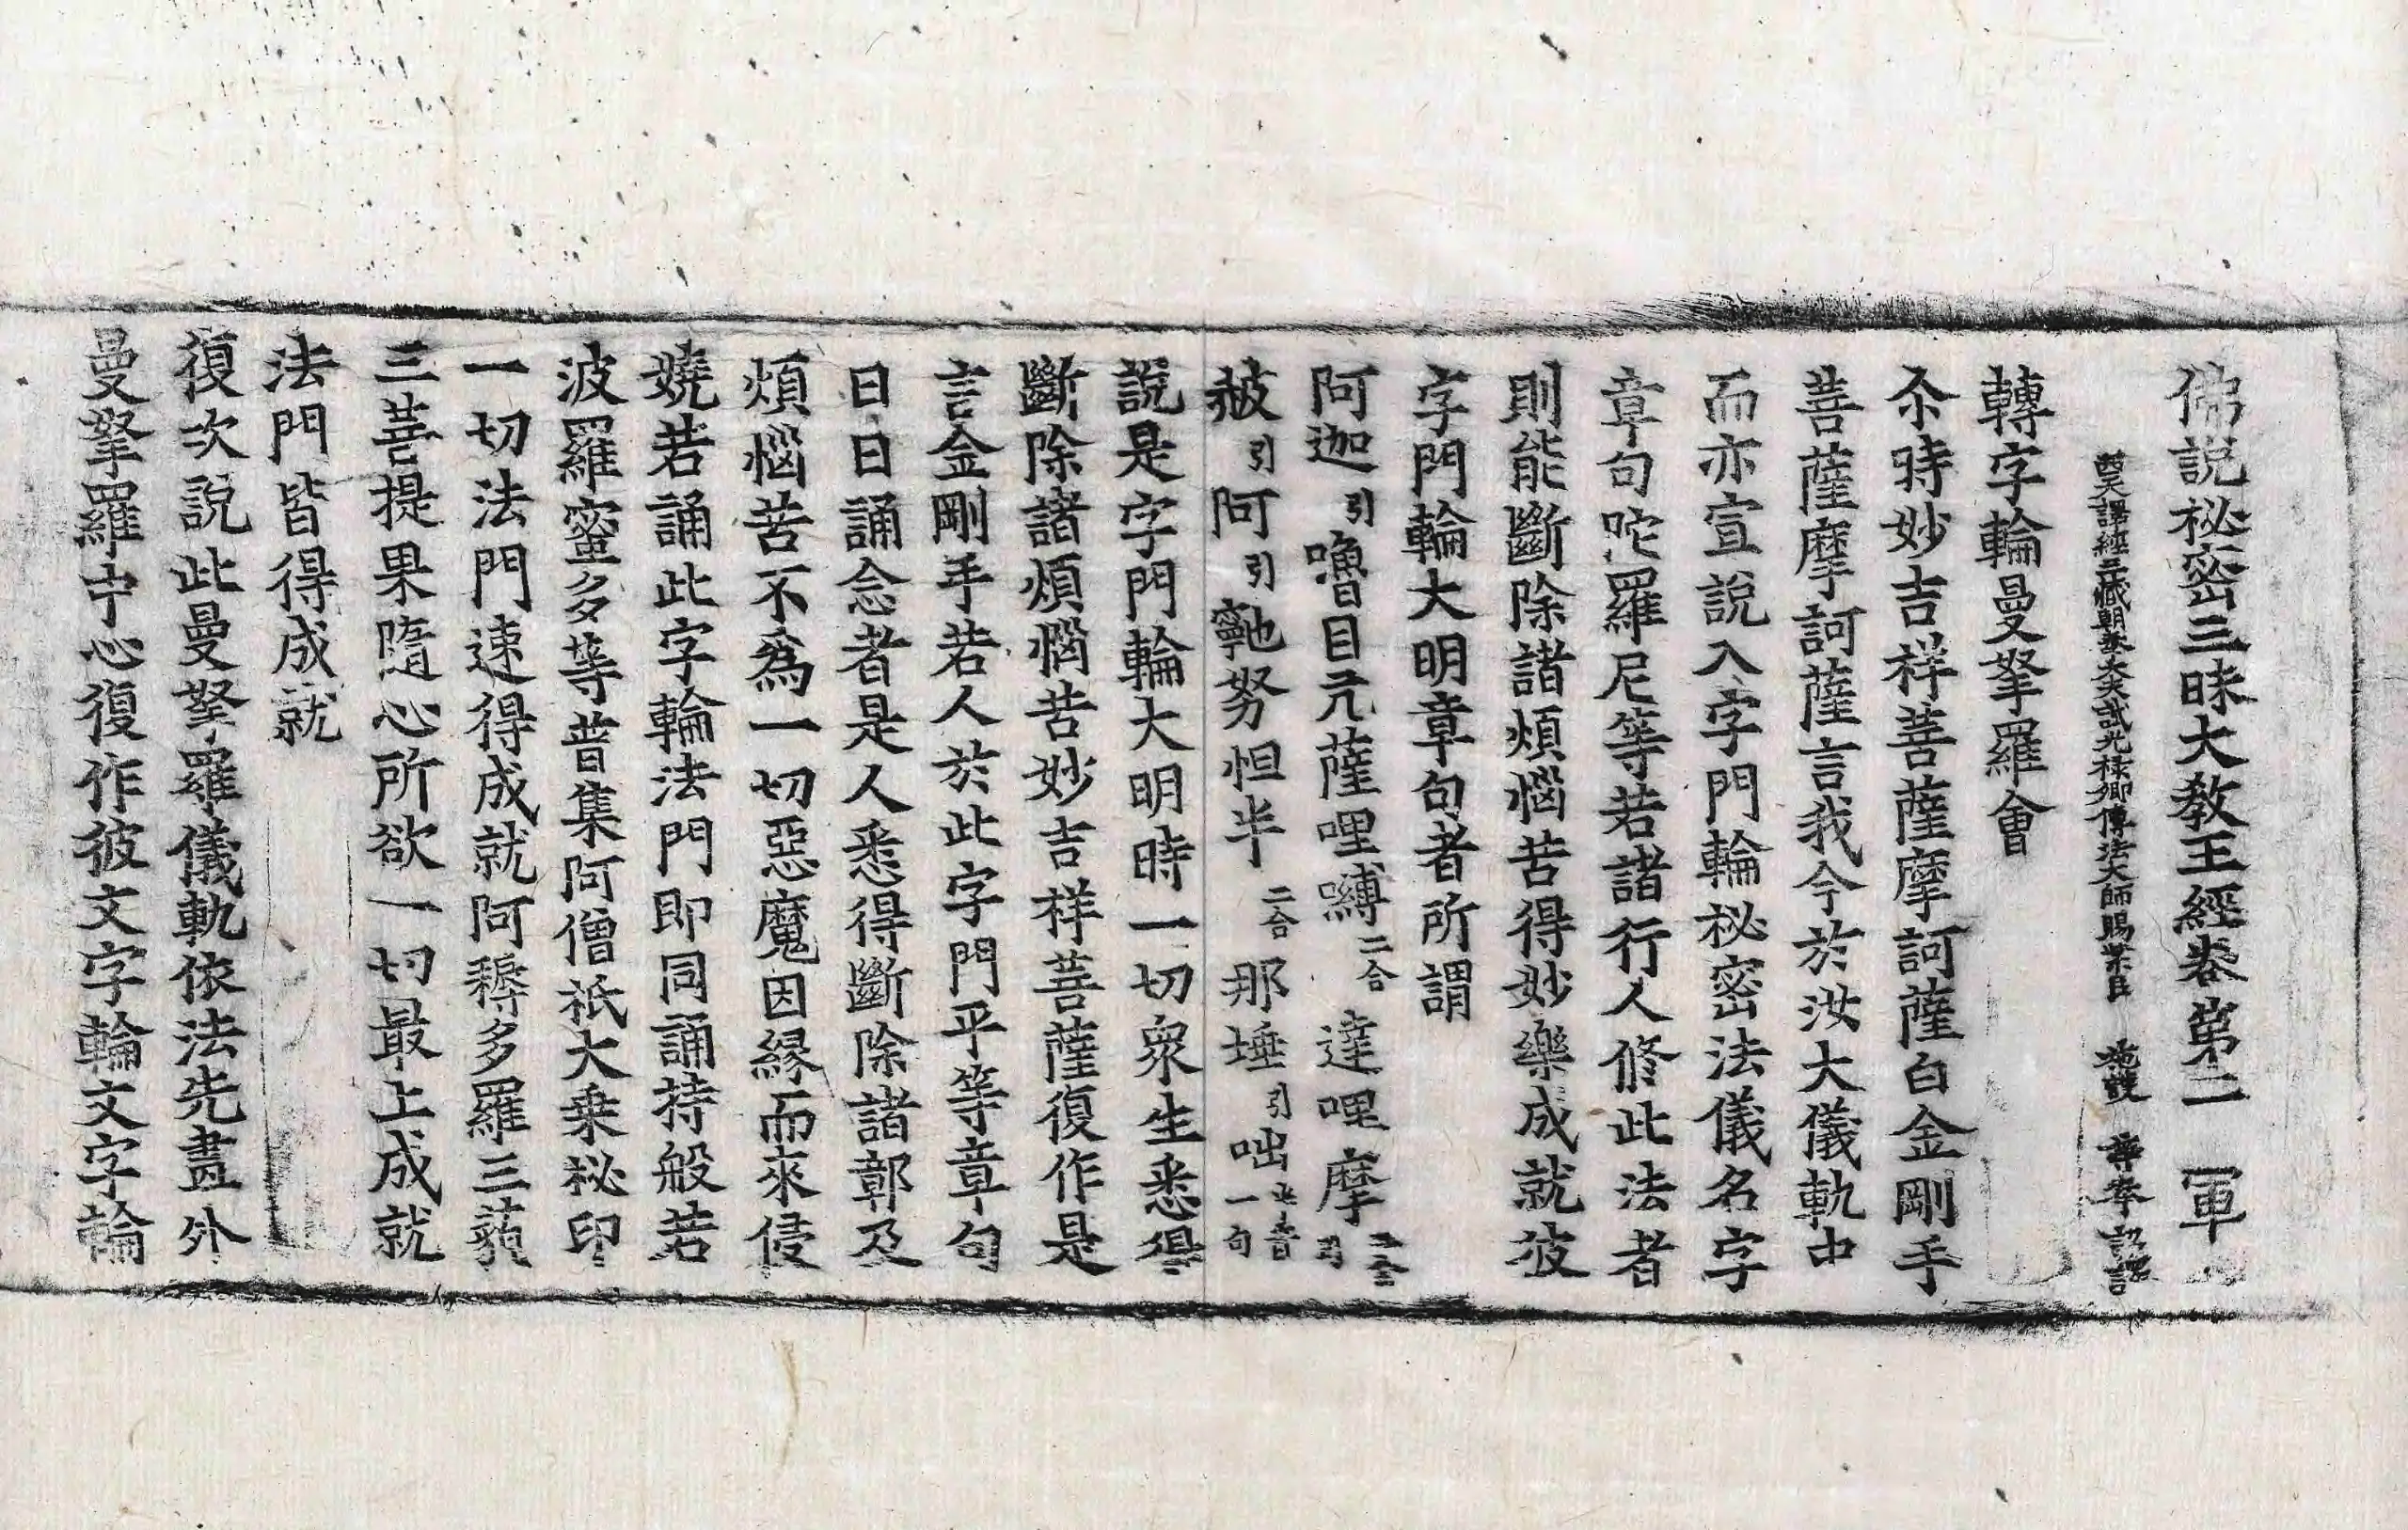 佛說秘密三昧大教王經卷第二 軍
西天譯經三藏朝奉大夫試光祿卿傳法大師賜紫臣 施護 等奉 詔譯
轉字輪曼拏羅會
尒時妙吉祥菩薩摩訶薩白金剛手
菩薩摩訶薩言我今於汝大儀軌中
而亦宣說入字門輪秘密法儀名字
章句陀羅尼等若諸行人修此法者
則能斷除諸煩惱苦得妙樂成就彼
字門輪大明章句者所謂
阿迦引嚕目亢薩哩嚩二合達哩摩二合引
赧引阿引𪘨努怛半二合那埵引咄半音一句
說是字門輪大明時一切衆生悉得
斷除諸煩惱苦妙吉祥菩薩復作是
言金剛手若人於此字門平等章句
日日誦念者是人悉得斷除諸鄣及
煩惱苦不爲一切惡魔因緣而來侵
嬈若誦此字輪法門即同誦持般若
波羅蜜多等普集阿僧祇大乘秘印
一切法門速得成就阿耨多羅三藐
三菩提果隨心所欲一切最上成就
法門皆得成就
復次說此曼拏羅儀軌依法先畫外
曼拏羅中心復作彼文字輪文字輪